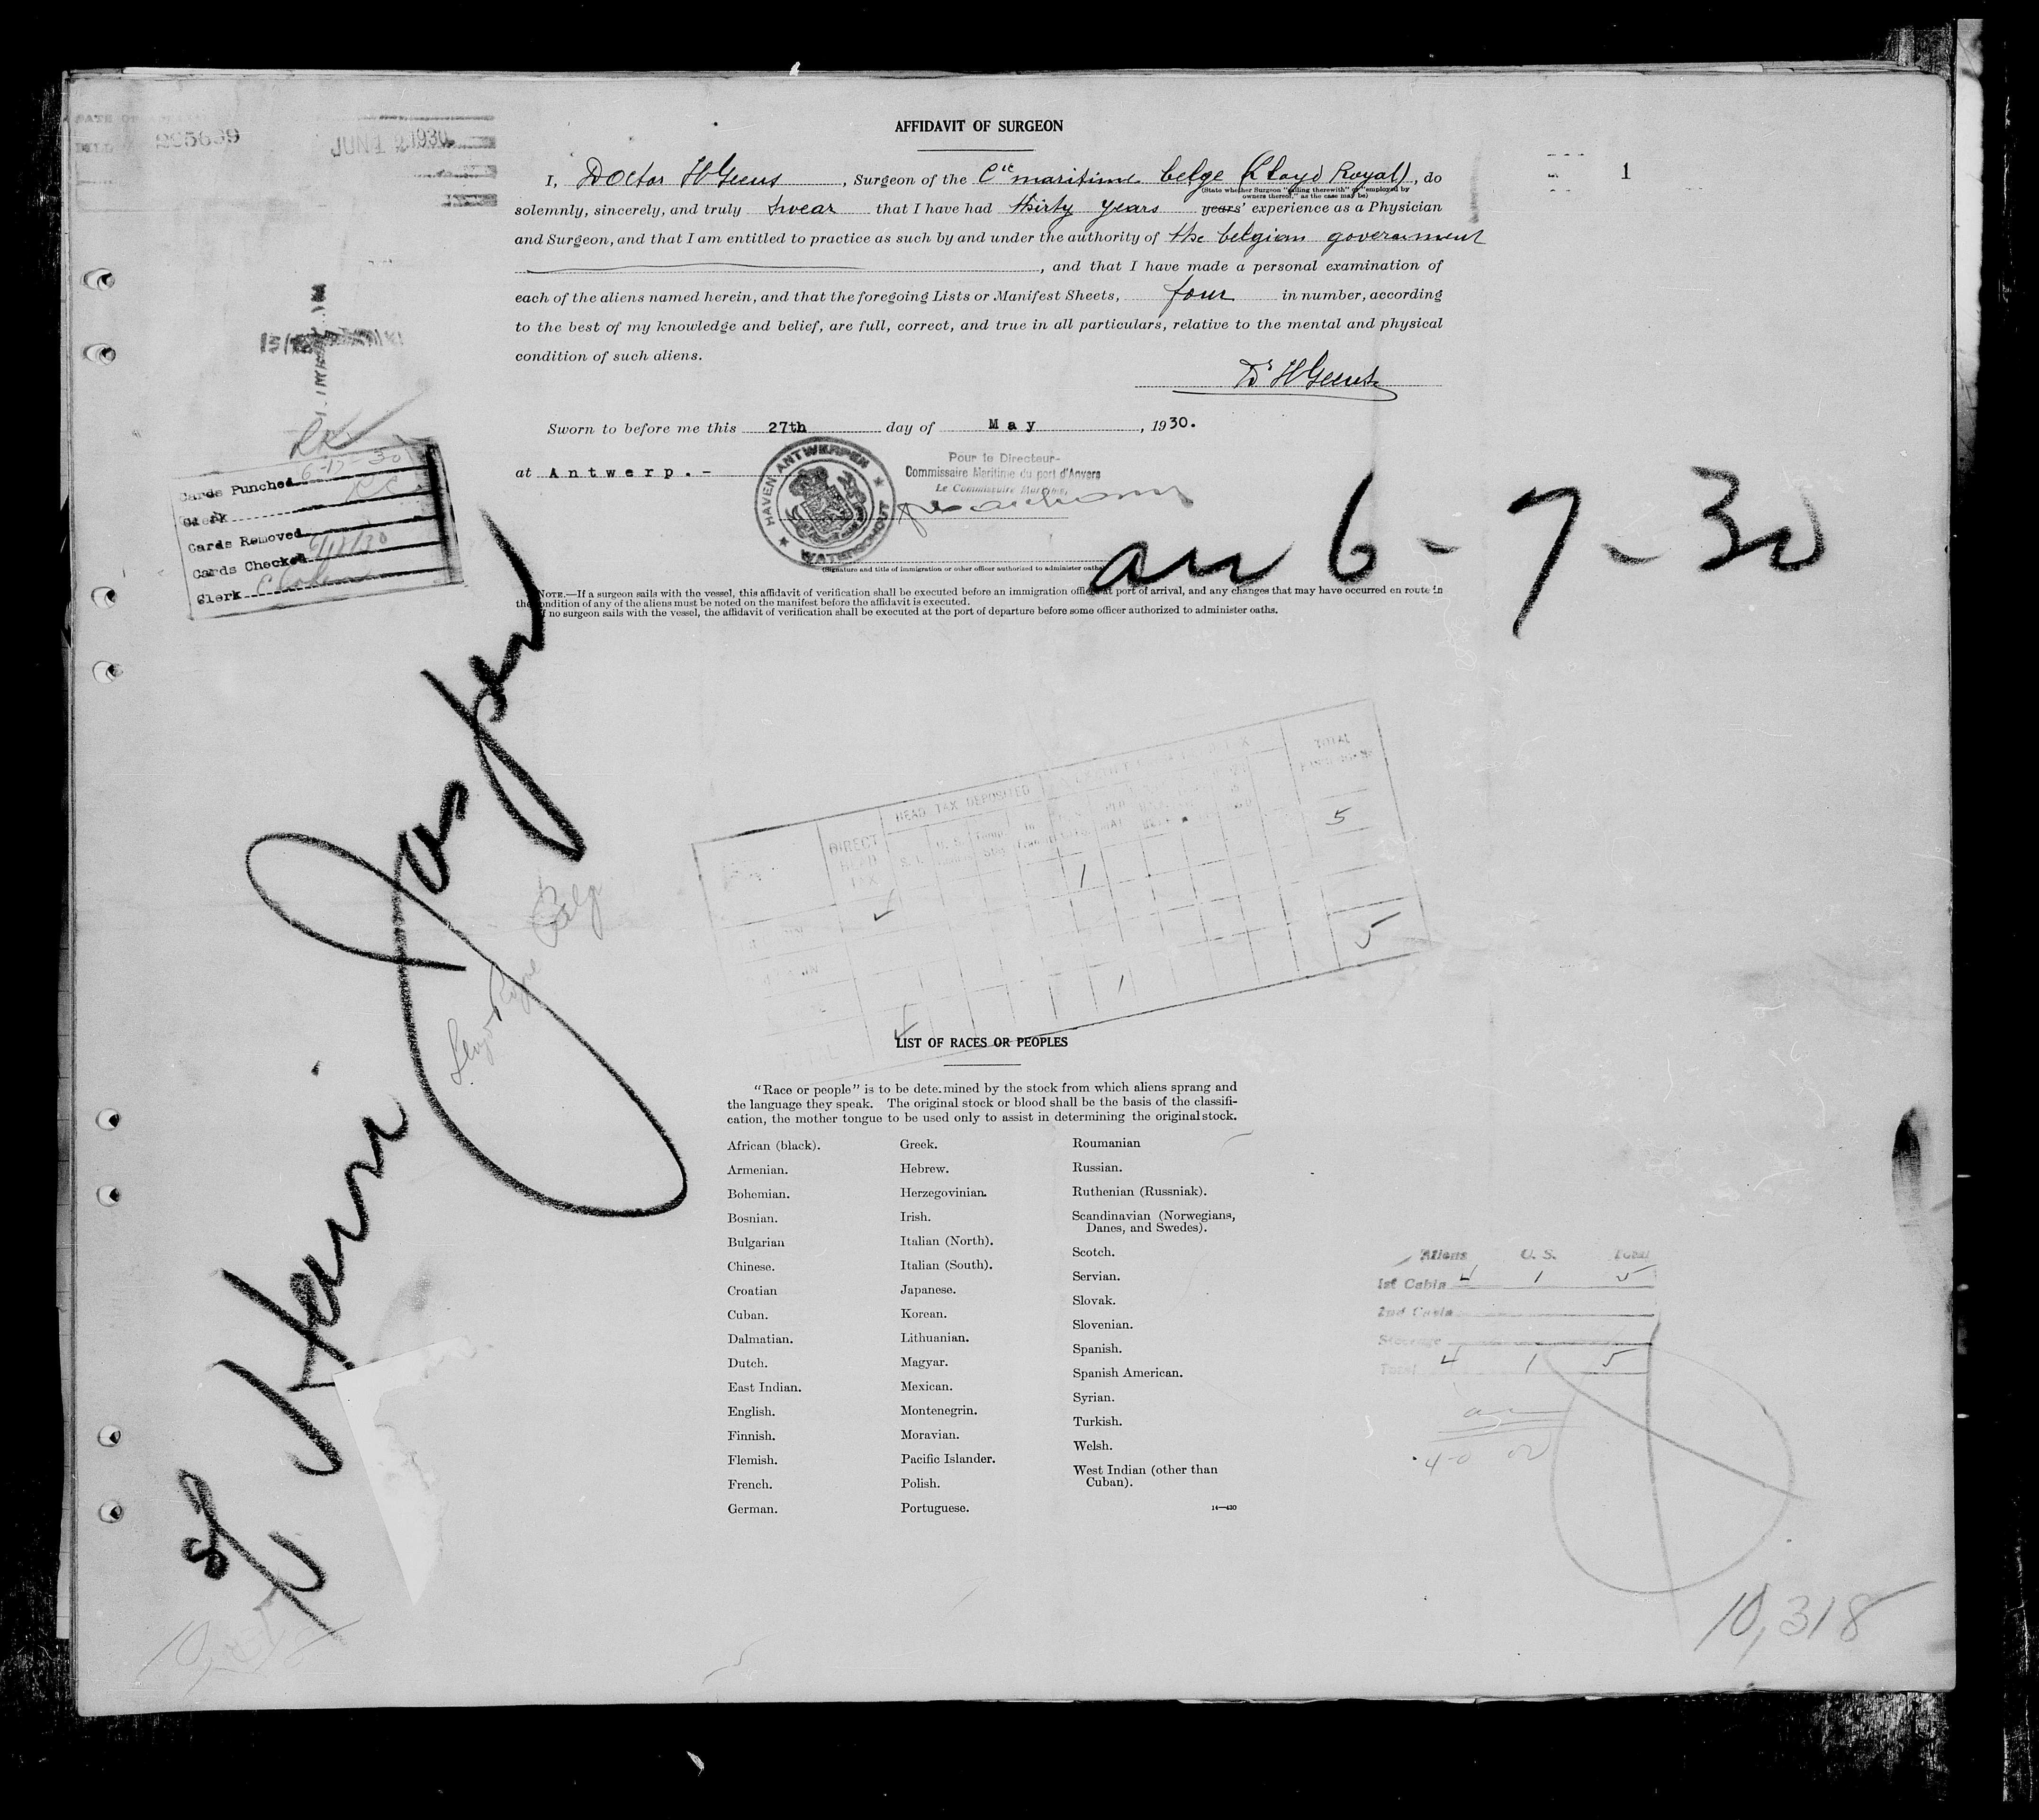 295699
JUN 12 1930
AFFIDAVIT OF SURGEON
1
I, Doctor H Geens, Surgeon of the Cie maritime belge (Lloyd Royal), do
(State whether Surgeon "sailing therewith" or "employed by
owners thereof," as the case may be)
solemnly, sincerely, and truly swear that I have had thirty years years' experience as a Physician
and Surgeon, and that I am entitled to practice as such by and under the authority of the belgian government
, and that I have made a personal examination of
each of the aliens named herein, and that the foregoing Lists or Manifest Sheets, four in number, according
to the best of my knowledge and belief, are full, correct, and true in all particulars, relative to the mental and physical
condition of such aliens.
Dr H Geens
Sworn to before me this 27th day of May, 1930.
at Antwerp.-
HAVEN ANTWERPEN
WATERSCHOUT
Pour le Directeur-
Commissaire Maritime du port d'Anvers
Le Commissaire Maritime,
(Signature and title of immigration or other officer authorized to administer oaths)
arr 6-7-30
NOTE.—If a surgeon sails with the vessel, this affidavit of verification shall be executed before an immigration officer at port of arrival, and any changes that may have occurred en route in
the condition of any of the aliens must be noted on the manifest before the affidavit is executed.
If no surgeon sails with the vessel, the affidavit of verification shall be executed at the port of departure before some officer authorized to administer oaths.
Cards Punched 6-17-30
Clerk
Cards Removed
Cards Checked 6/18/30
Clerk
S/S Henri Jaspar
Lloyd Royal Belg
HEAD TAX DEPOSITED
TOTAL
DIRECT
HEAD
TAX
5
1
4
5
1
4
LIST OF RACES OR PEOPLES
"Race or people" is to be determined by the stock from which aliens sprang and
the language they speak. The original stock or blood shall be the basis of the classifi-
cation, the mother tongue to be used only to assist in determining the original stock.
African (black).
Armenian.
Bohemian.
Bosnian.
Bulgarian
Chinese.
Croatian
Cuban.
Dalmatian.
Dutch.
East Indian.
English.
Finnish.
Flemish.
French.
German.
Greek.
Hebrew.
Herzegovinian.
Irish.
Italian (North).
Italian (South).
Japanese.
Korean.
Lithuanian.
Magyar.
Mexican.
Montenegrin.
Moravian.
Pacific Islander.
Polish.
Portuguese.
Roumanian
Russian.
Ruthenian (Russniak).
Scandinavian (Norwegians,
Danes, and Swedes).
Scotch.
Servian.
Slovak.
Slovenian.
Spanish.
Spanish American.
Syrian.
Turkish.
Welsh.
West Indian (other than
Cuban).
14—430
Aliens U. S. Total
1st Cabin 4 1 5
2nd Cabin
Steerage
Total 4 1 5
10,318